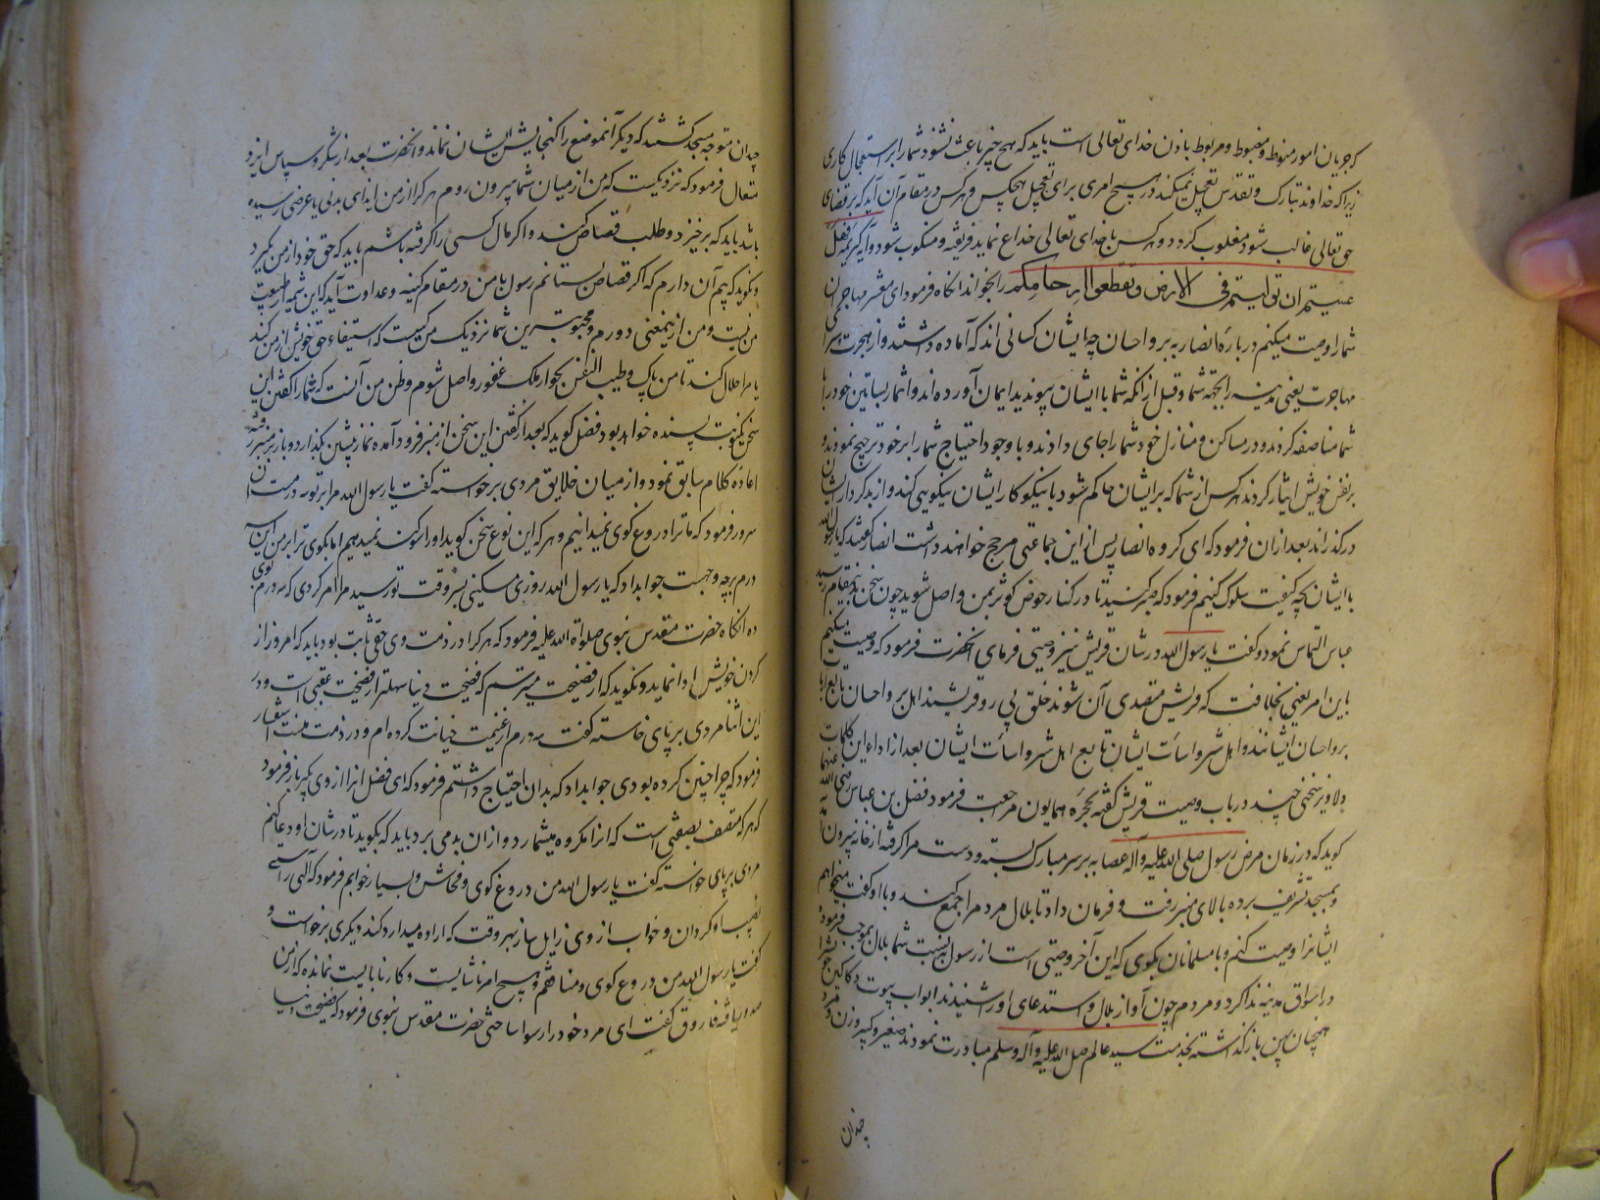 که جریان امور منوط و مضبوط و مربوط باذن خدای تعالی است باید که هیچ خیر باعث نشود شما را بر استعجال کاری
زیرا که خداوند تبارک و تقدس تعجیل نمیکند در هیچ امری برای تعجیل هیچکس و هر کس در مقام آن آید که بر قضای
حق تعالی غالب شود مغلوب گردد و هر کس با خدای تعالی خداع نماید فریفته و منکوب شود و آیه کریمه فهل
عسیتم ان تولیتم فی الارض و تقطعوا ارحامکم را بخواند انکاه فرمود ای معشر مهاجر ان
شما را وصیت میکنم در بارهٔ انصار به بر و احسان چه ایشان کسانی اند که آماده داشتند و از هجرت سرا
مهاجرت یعنی مدینه را بجهة شما و قبل از انکه شما با ایشان پیوندید ایمان آورده اند و اثمار بساتین خود را با
شما مناصفه کردند و در مساکن و منازل خود شما را جای دادند و با وجود احتیاج شما را بر خود ترجیح نمودند و
بر نفس خویش ایثار کردند هر کس از شما که بر ایشان حاکم شود با نیکو کار ایشان نیکویی کند و از بد کردار ایشان
در گذراند بعد از ان فرمود که ای گروه انصار پس از این جماعتی مرجح خواهند داشت انصار گفتند که یا رسول الله
با ایشان بچه کیفیت سلوک کنیم فرمود که صبر کنید تا در کنار حوض کوثر بمن واصل شوید چون سخن بدینمقام رسید
عباس التماس نمود و گفت یا رسول الله در شان قریش نیز وصیتی فرمای آنحضرت فرمود که وصیت میکنیم
باین امر یعنی بخلافت که قریش متصدی آن شوند خلق پی رو قریشند اهل بر و احسان تابع
بر و احسان ایشانند و اهل شر و اسائت ایشان تابع اهل شر و اسائت ایشان بعد از اداء این کلمات
دلاویز سخنی چند در باب وصیت قریش گفته بحجره همایون مراجعت فرمود فضل بن عباس رضی الله عنهما
گوید که در زمان مرض رسول صلی الله علیه و آله عصابه بر سر مبارک بسته و دست مرا گرفته از خانه بیرون آمد
و بمسجد تشریف برده بالای منبر رفت و فرمان داد تا بلال مردم را جمع کند و با او گفت میخواهم
ایشانرا وصیت کنم و با مسلمانان بکوی که این آخر وصیتی است از رسول به نسبت شما بلال بموجب فرموده
در اسواق مدینه ندا کرد و مردم چون آواز بلال و استدعای او شنیدند ابواب بیوت و دکاکین خود را
همچنان پهن باز گذاشته بخدمت سید عالم صلی الله علیه و آله و سلم مبادرت نمودند صغیر و کبیر و زن و مرد
چندان
چندان متوجه مسجد گشتند که دیگر آنموضع را گنجایش ایشان نماند و آنحضرت بعد از شکر و سپاس ایزد
متعال فرمود که نزدیکست که من از میان شما بیرون روم هر کرا از من ایذای بدنی یا عرضی رسیده
باشد باید که بر خیزد و طلب قصاص کند و اگر مال کسی را گرفته باشم باید که حق خود از من بگیرد
و نگوید که بیم آن دارم که اگر قصاص بستانم رسول با من در مقام کینه و عداوت آید که این شیمه از طبیعت
من نیست و من از ینمعنی دورم و محبوبترین شما نزدیک من کسیست که استیفاء حق خویش از من کند
یا مرا حلال کند تا من پاک و طیب النفس بجوار ملک غفور واصل شوم و ظن من آنست که شما را گفتن این
سخن یکنوبت پسنده خواهد بود فضل گوید که بعد از گفتن این سخن از منبر فرود آمده نماز پیشین بگذارد و باز بر منبر رفته
اعادهٔ کلام سابق نمود و از میان خلایق مردی برخواسته گفت یا رسول الله مرا بر تو سه درمست ان
سرور فرمود که ما ترا دروغ گوی نمیدانیم و هر که این نوع سخن گوید او را سوگند نمیدهیم اما بگوی ترا بر من این
درم بچه وجهست جواب داد که یا رسول الله روزی مسکینی بسر وقت تو رسید مرا امر کردی که سه درم بوی
ده انگاه حضرت مقدس نبوی صلواة الله علیه فرمود که هر کرا در ذمت وی حقی ثابت بود باید که امروز از
گردن خویش ادا نماید و نگوید که از فضیحت میترسم که فضیحت دنیا سهلتر از فضیحت عقبی است و در
این اثنا مردی بر پای خاسته گفت سه درم از غنیمت خیانت کرده ام و در ذمت منست استفسار
فرمود که چرا چنین کرده بودی جواب داد که بدان احتیاج داشتم فرمود که ای فضل انرا از وی بگیر باز فرمود
که هر که متصف بصفتی است که انرا مکروه میشمارد و از ان بدمی برد باید که بگوید تا در شان او دعا کنم
مردی بر پای خواسته گفت یا رسول الله من دروغ گوی و فحاش و بسیار خوابم فرمود که آلهی راستی
نصیب او گردان و خواب از وی زایل ساز بهر وقت که اراده میدارد کند دیگری برخواست و
گفت یا رسول الله من دروغ گوی و منافقم و هیچ امر ناشایست و کار نابایست نمانده که از من
صدور یافته فاروق گفت ای مرد خود را رسوا ساختی حضرت مقدس نبوی فرمود که فضیحت دنیا